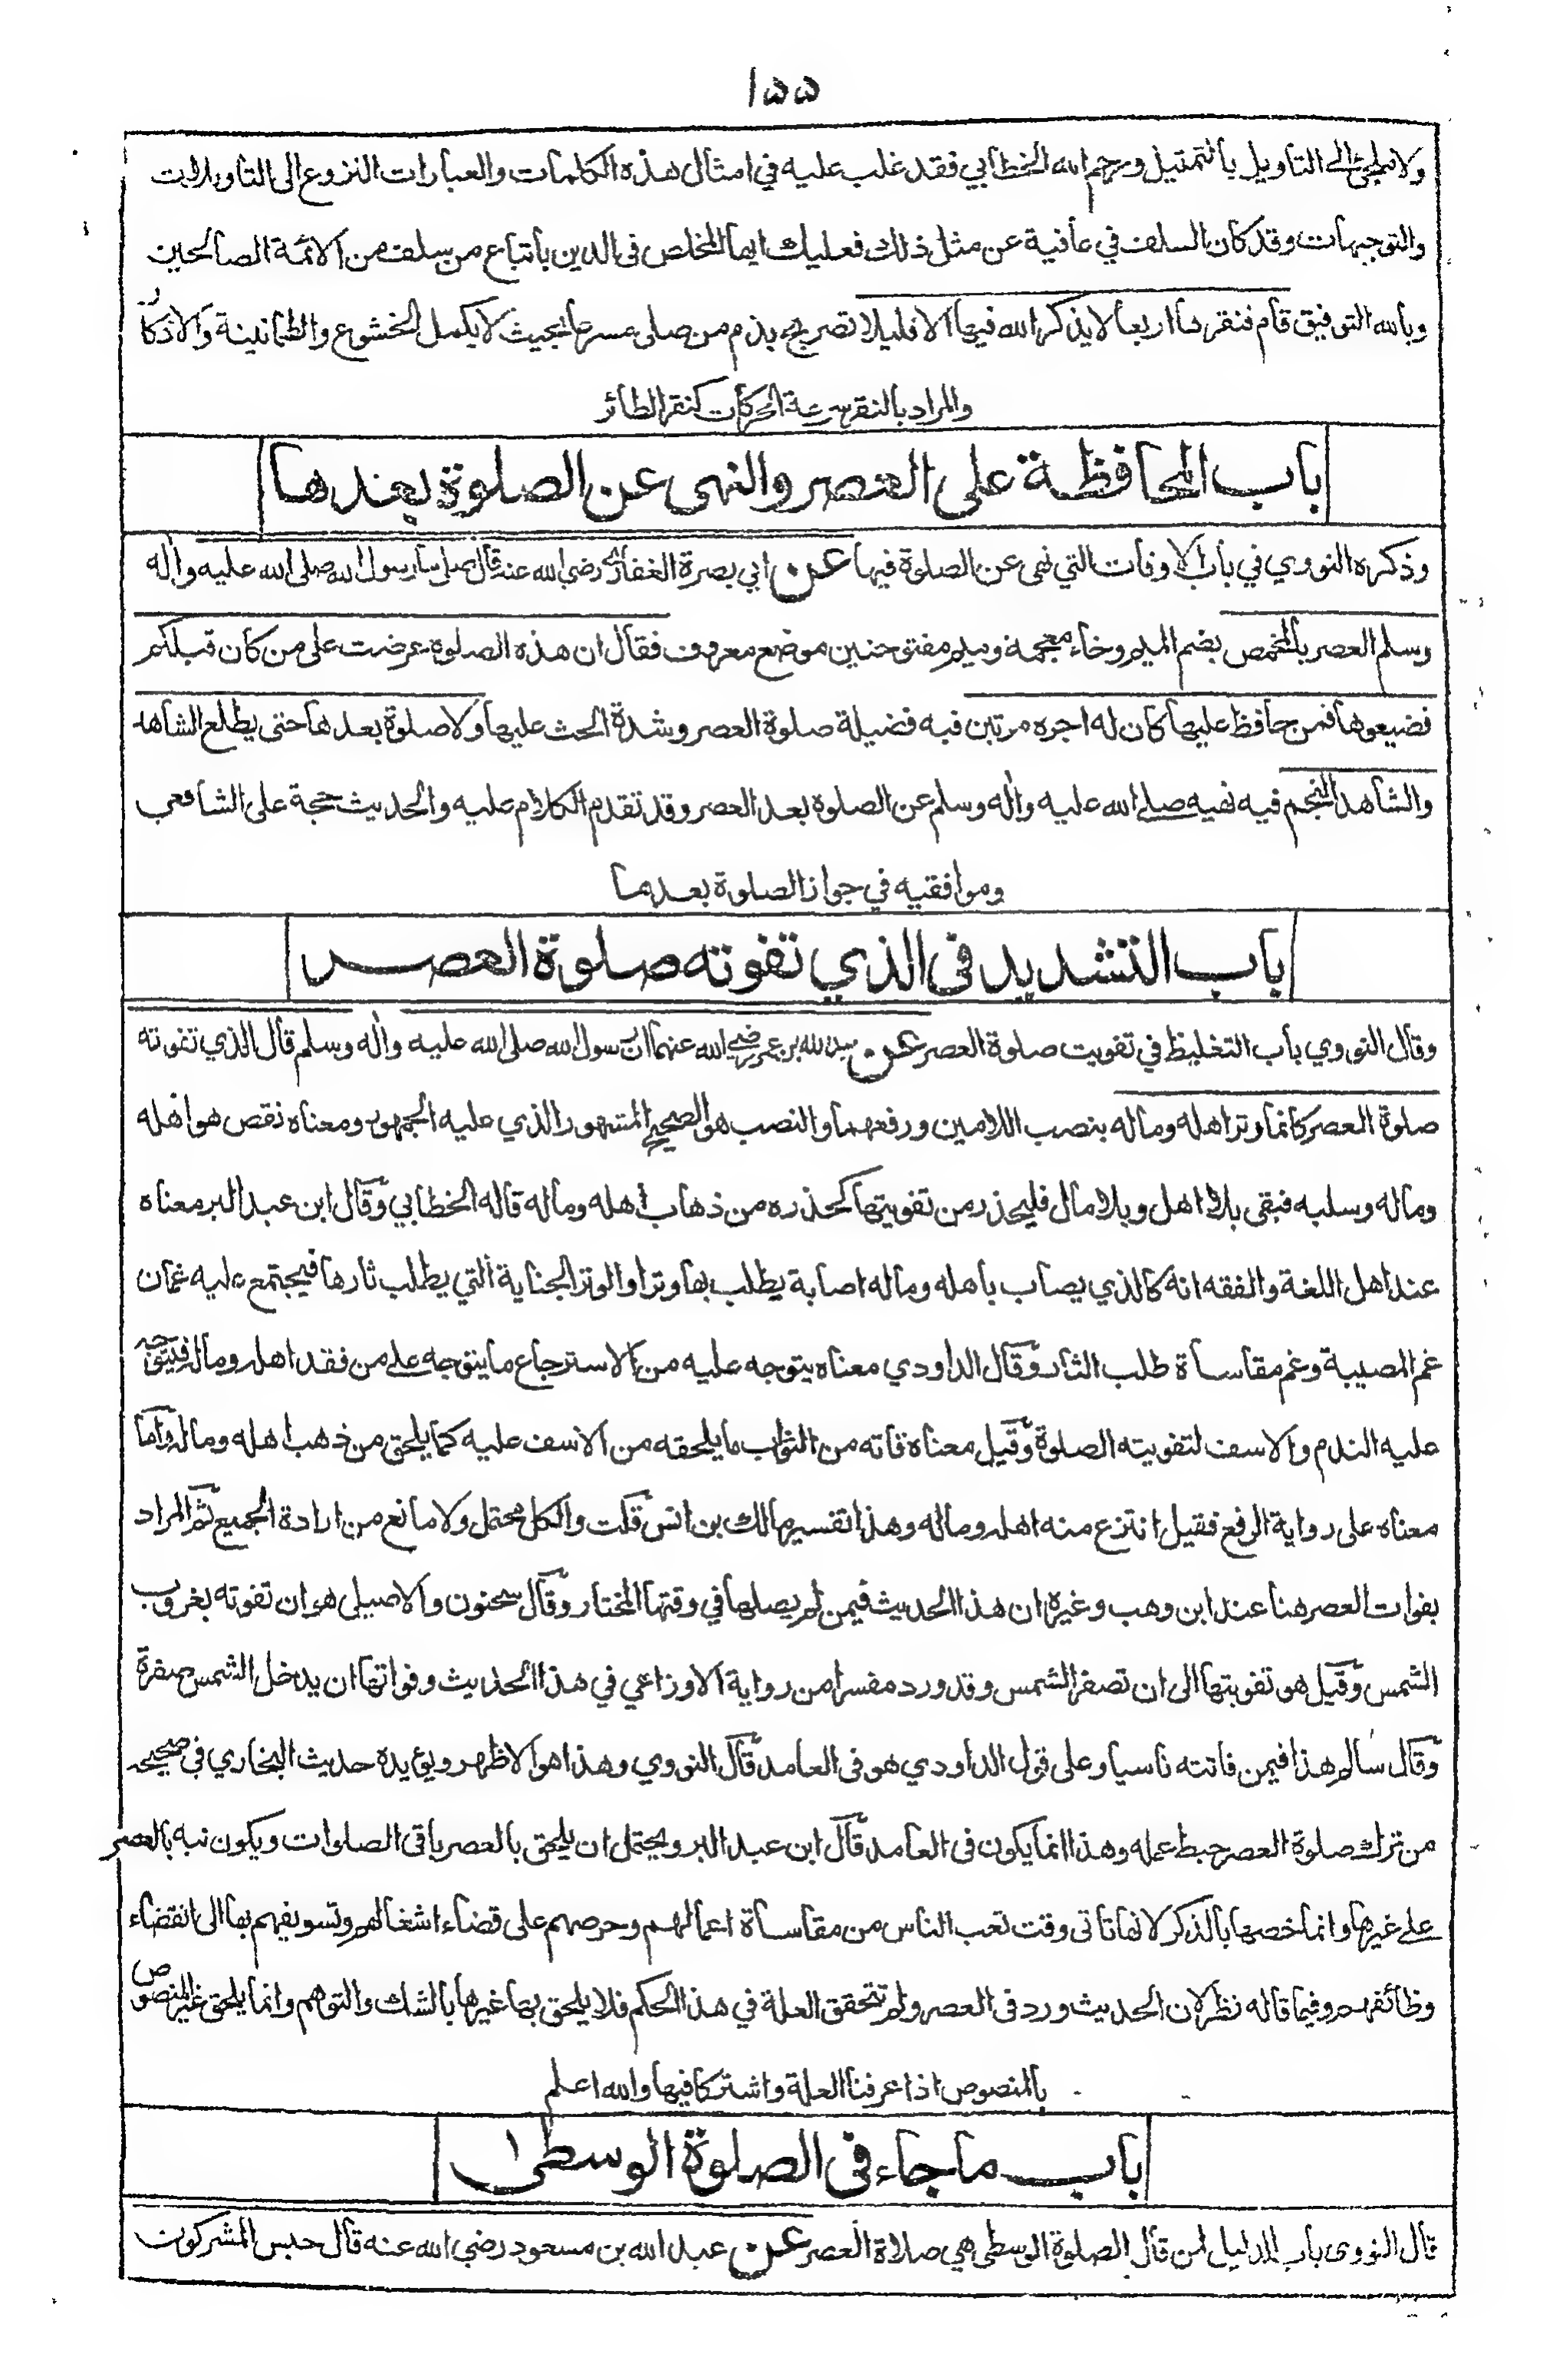 ١٥٥
ولا ملجئ الى التاويل بالتمثيل ورحم الله الخطابي فقد غلب عليه في امثال هذه الكلمات والعبارات النزوع الى التاويلات
والتوجيهات وقد كان السلف في عافية عن مثل ذلك فعليك ايها المخلص فى الدين باتباع من سلف من الائمة الصالحين
وبالله التوفيق قام فنقرها اربعا لا يذكر الله فيها الا قليلا تصريح بذم من صلى مسرعا بحيث لا يكمل الخشوع والطمانينة والاذكار
والمراد بالنقر سرعة الحركات كنقر الطائر
باب المحافظة على العصر والنهى عن الصلوة بعدها
وذكره النووي في باب الاوقات التي نهى عن الصلوة فيها عن ابي بصرة الغفاري رضي الله عنه قال صلى بنا رسول الله صلى الله عليه واٰله
وسلم العصر بالمخمص بضم الميم وخاء معجمة وميم مفتوحتين موضع معروف فقال ان هذه الصلوة عرضت على من كان قبلكم
فضيعوها فمن حافظ عليها كان له اجره مرتين فيه فضيلة صلوة العصر وشدة الحث عليها ولا صلوة بعدها حتى يطلع الشاهد
والشاهد النجم فيه نهيه صلى الله عليه واٰله وسلم عن الصلوة بعد العصر وقد تقدم الكلام عليه والحديث حجة على الشافعي
وموافقيه في جواز الصلوة بعدها
باب التشديد فى الذي تفوته صلوة العصر
وقال النووي باب التغليظ في تفويت صلوة العصر عن عبد الله بن عمر رضي الله عنهما ان رسول الله صلى الله عليه واٰله وسلم قال الذي تفوته
صلوة العصر كانما وتر اهله وماله بنصب اللامين ورفعهما والنصب هو الصحيح المشهور الذي عليه الجمهور ومعناه نقص هو اهله
وماله وسلبه فبقى بلا اهل وبلا مال فليحذر من تفويتها كحذره من ذهاب اهله وماله قاله الخطابي وقال ابن عبد البر معناه
عند اهل اللغة والفقه انه كالذي يصاب باهله وماله اصابة يطلب بها وترا والوتر الجناية التي يطلب ثارها فيجتمع عليه غمان
غم المصيبة وغم مقاساة طلب الثار وقال الداودي معناه يتوجه عليه من الاسترجاع ما يتوجه على من فقد اهله وماله فيتوجه
عليه الندم والاسف لتفويته الصلوة وقيل معناه فاته من الثواب ما يلحقه من الاسف عليه كما يلحق من ذهب اهله وماله واما
معناه على رواية الرفع فقيل انتزع منه اهله وماله وهذا تفسير مالك بن انس قلت والكل محتمل ولا مانع من ارادة الجميع ثم المراد
بفوات العصر هنا عند ابن وهب وغيره ان هذا الحديث فيمن لم يصلها في وقتها المختار وقال سحنون والاصيلي هو ان تفوته بغروب
الشمس وقيل هو تفويتها الى ان تصفر الشمس وقد ورد مفسرا من رواية الاوزاعي في هذا الحديث وفواتها ان يدخل الشمس صفرة
وقال سالم هذا فيمن فاتته ناسيا وعلى قول الداودي هو فى العامد قال النووي وهذا هو الاظهر ويؤيده حديث البخاري في صحيحه
من ترك صلوة العصر حبط عمله وهذا انما يكون فى العامد قال ابن عبد البر ويحتمل ان يلحق بالعصر باقى الصلوات ويكون نبه بالعصر
على غيرها وانما خصها بالذكر لانها تاتى وقت تعب الناس من مقاساة اعمالهم وحرصهم على قضاء اشغالهم وتسويفهم بها الى انقضاء
وظائفهم وفيما قاله نظر لان الحديث ورد فى العصر ولم تتحقق العلة في هذا الحكم فلا يلحق بها غيرها بالشك والتوهم وانما يلحق غير المنصوص
بالمنصوص اذا عرفنا العلة واشتركا فيها والله اعلم
باب ما جاء فى الصلوة الوسطى
قال النووى باب الدليل لمن قال الصلوة الوسطى هي صلاة العصر عن عبد الله بن مسعود رضي الله عنه قال حبس المشركون